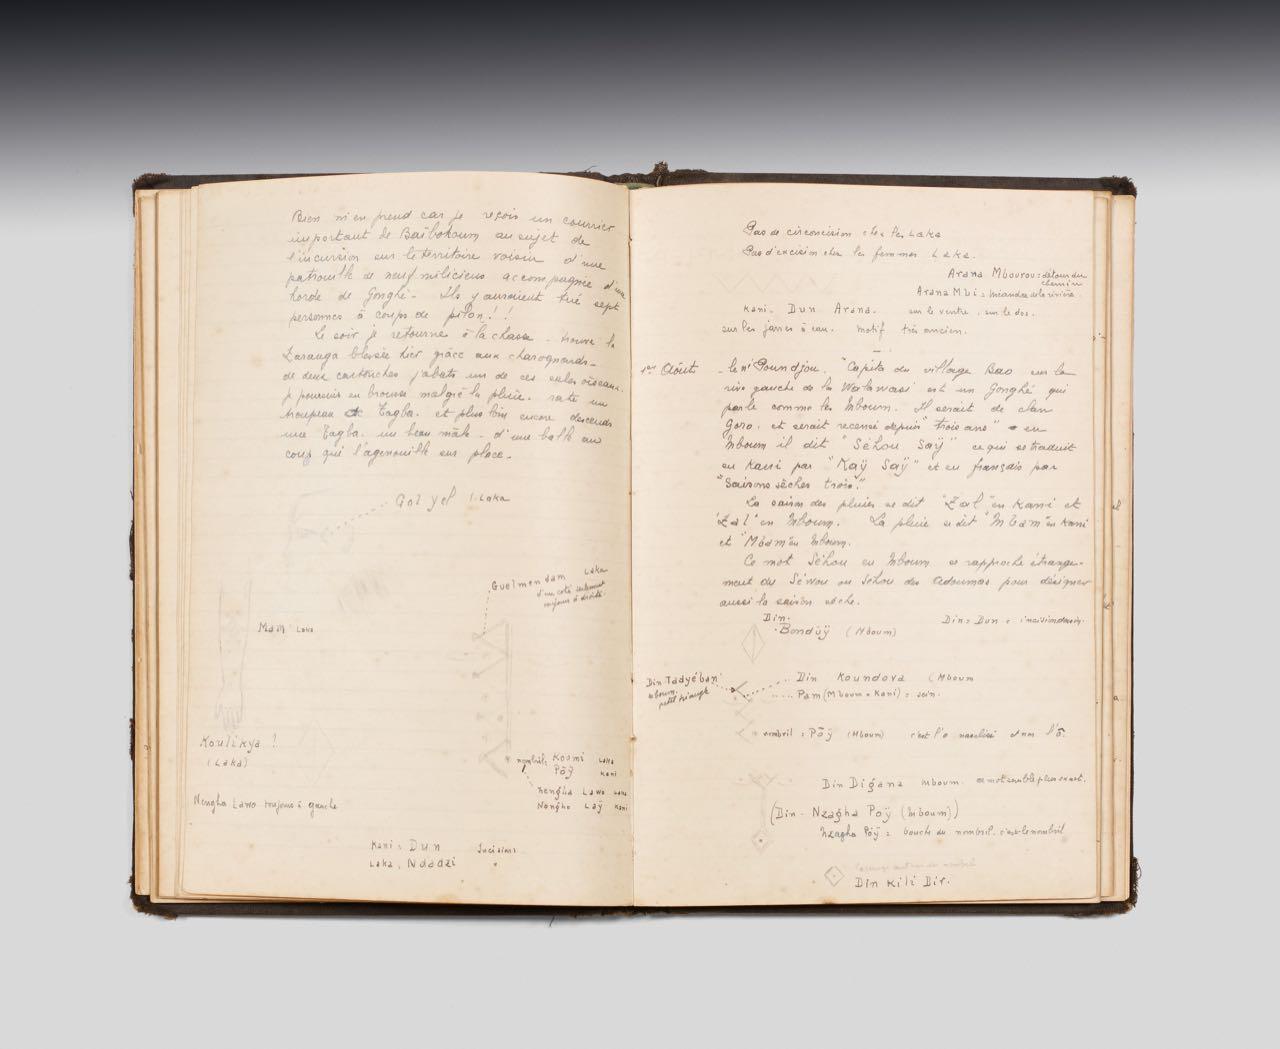 Bien m'en prend car je reçois un courrier
important de Baïbokoum au sujet de
l'incursion sur le territoire voisin d'une
patrouille de neuf miliciens accompagnée d'une
horde de Gonghé - Ils y auraient tué sept
personnes à coups de pilon!!
Le soir je retourne à la chasse - trouve la
blessée hier grâce aux charognards -
de deux cartouches j'abats un de ces sales oiseaux.
je poursuis en brousse malgré la pluie. rate un
troupeau de Tagba. et plus loin encore descends
une Tagba. un beau mâle. d'une balle au
coup qui l'agenouille sur place.
Gol yel (Laka
Guelmendam Laka
d'un coté seulement
toujours à droite.
Mam Laka
Koulikya !
(Laka)
nombril: Koumi Laka
Pöÿ Kani
Nengha Lawo Laka
Nengha Laÿ Kani
Nengha Lawo toujours à gauche
Kani: Dun Incisions
Laka, Ndadzi "
Pas de circoncision chez les Laka
Pas d'excision chez les femmes Laka.
Arana Mbourou: détour du
chemin
Arana Mbi = méandre de la rivière
Kani. Dun Arana. sur le ventre, sur le dos.
sur les jarres à eau. motif très ancien.
1er Août - le né Poundjou. "Capita du village Bao sur la
rive gauche de la est un Gonghé qui
parle comme les Mboum. Il serait de clan
Goro. et serait recensé depuis "trois ans" - en
Mboum il dit "Séhou Saÿ" ce qui se traduit
en Kani par "Kaÿ Saÿ" et en français par
"Saisons sèches trois."
La saison des pluies se dit "Zal" en Kani et
"Zal" en Mboum. La pluie se dit "Mbam" en Kani
et "Mbam" en Mboum.
Ce mot Séhou en Mboum se rapproche étrange-
ment du Séwou ou Séhou des Adoumas pour désigner
aussi la saison sèche.
Din.
Bondüÿ (Mboum)
Din = Dun = incision dessin.
Din Tadyéban
mboum.
petit triangle
Din Koundova (Mboum
Pam (Mboum + Kani) = sein.
nombril = Pöÿ (Mboum) c'est l'o nasalisé et non l'ö.
Din Digana mboum. ce mot semble plus exact.
(Din - Nzagha Poÿ (Mboum))
Nzagha Pöÿ = bouche du nombril. c'est le nombril
Din Kili Dir.